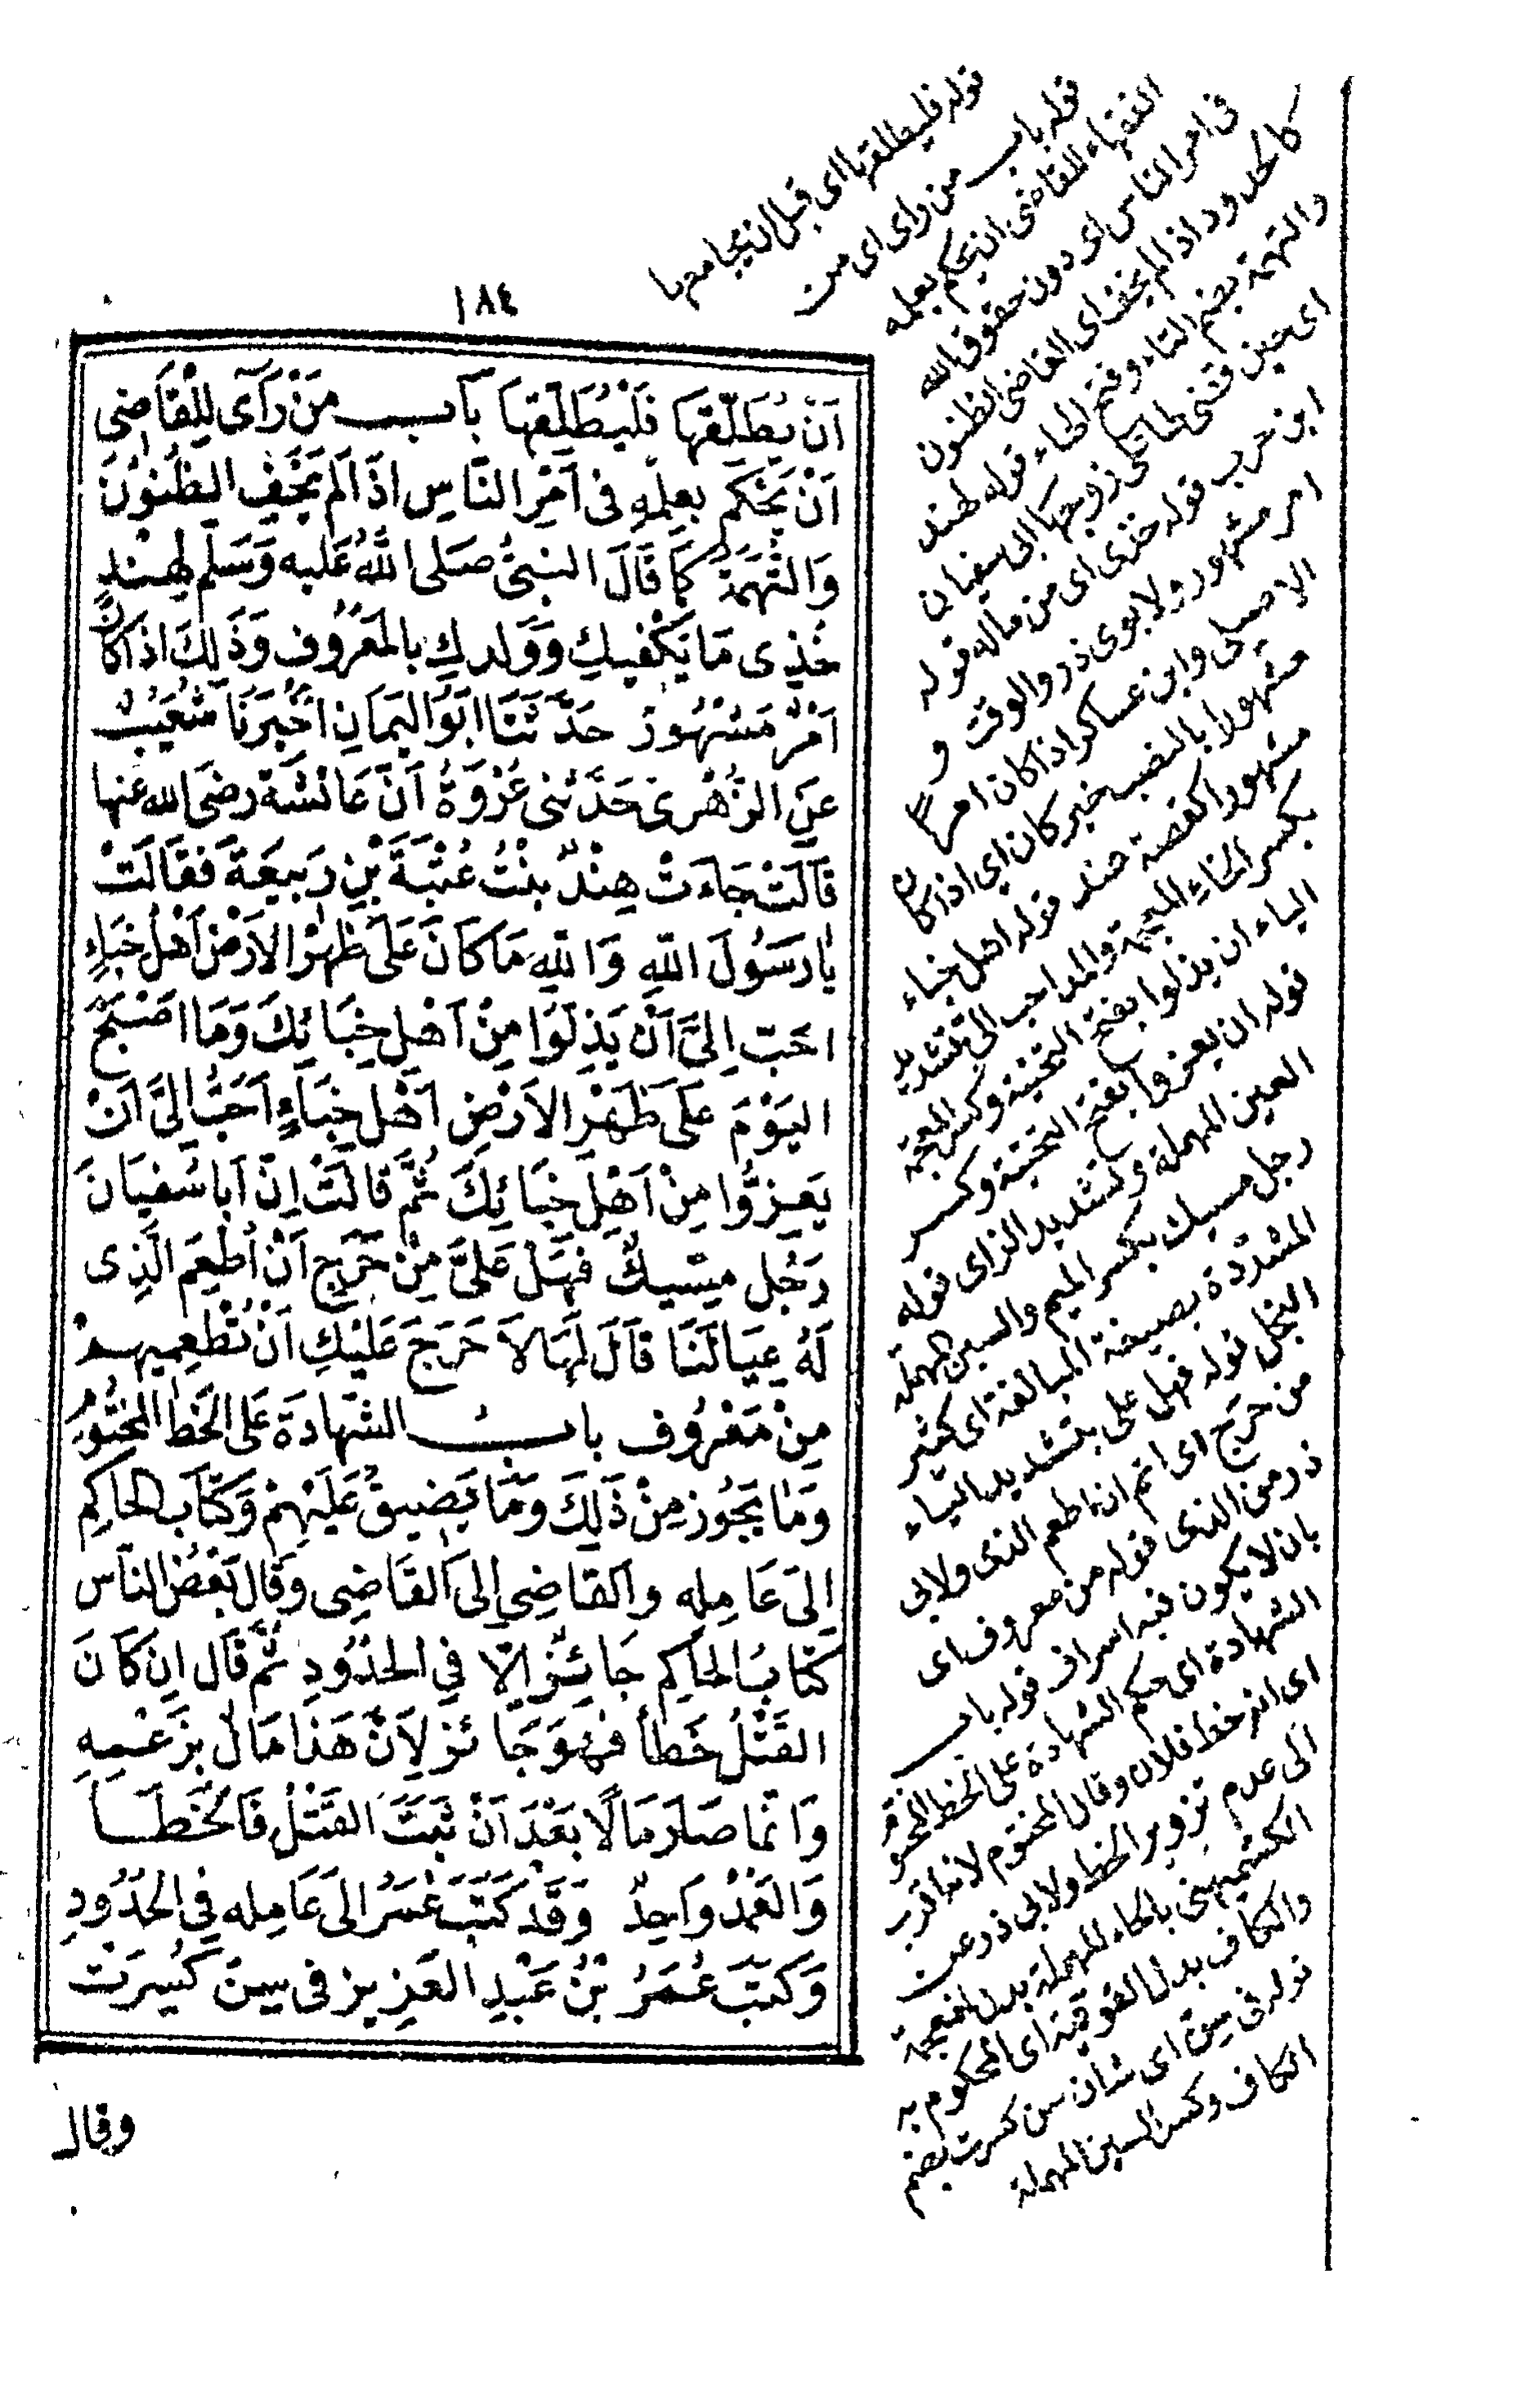 ١٨٤
اَنْ يُطَلِّقَهَا فَلْيُطَلِّقْهَا بَابُ مَنْ رَآى لِلْقَاضِى
اَنْ يَحْكُمَ بِعِلْمِهِ فى اَمْرِ النَّاسِ اِذَا لَمْ يَخَفِ الظُّنُونَ
وَالتُّهَمَةَ كَمَا قَالَ النبىُّ صَلى اللهُ عَليه وَسَلم لِهِنْدٍ
خُذِى مَا يَكْفيكِ وَوَلدكِ بِالمَعْرُوفِ وَذَلِكَ اذَا كَانَ
اَمْرٌ مَشْهُورٌ حَدَّثَنَا ابَوُ اليَمَانِ اَخْبَرَنَا شُعَيْبٌ
عَنِ الزُّهْرِىّ حَدَّثَنى عُرْوَةُ اَنَّ عَائشَةَ رضىَ الله عنها
قَالَتْ جَاءَتْ هِنْدٌ بنْتُ عُتْبَةَ بْنِ رَبيعَةَ فَقَالَتْ
يَا رَسُولَ اللّهِ وَاللّهِ مَا كَانَ عَلَى ظَهْرِ الاَرْضِ اَهْلُ خِبَاءٍ
احَبَّ اِلىَّ اَنْ يَذِلّوُا مِنْ اَهْلِ خِبَائِكَ وَمَا اَصْبَحَ
اليَوْمَ عَلى ظَهْرِ الاَرْضِ اَهْلُ خِبَاءٍ اَحَبَّ اِلىَّ اَنْ
يَعِزُّوا مِنْ اَهْلِ خِبَائِكَ ثُمَّ قَالَتْ اِنَّ اَبَا سُفيَانَ
رَجُل مِسّيكٌ فَهَلْ عَلىَّ مِنْ حَرَجٍ اَنْ اُطْعِمَ الَّذِى
لَهُ عِيَالَنَا قَالَ لَهَا لاَ حَرَجَ عَلَيْكِ اَنْ تُطْعِمِيهِمْ
مِنْ مَعْرُوف بابُ الشهَادَةِ عَلى الخَطّ المَخْتُومِ
وَمَا يَجُوز مِنْ ذَلِكَ وَمَا يَضِيقُ عَلَيْهِمْ وَكِتَابَ الحاكِمِ
اِلىَ عَامِلِهِ وَالقَاضِي اِلى القَاضِى وَقَال بَعْضُ النَاسِ
كِتَابُ الحَاكِمِ جَائِزٌ اِلّا فِي الحُدُودِ ثمَّ قَال اِن كَانَ
القَتْلُ خَطَأً فهُوَ جَائز لِاَنَّ هَذَا مَالٌ بِزَعْمِهِ
وَاِنّمَا صَارَ مَالًا بَعْدَ اَنْ ثَبَتَ القَتْلُ فَالخَطَا
وَالعَمْدُ وَاحِدٌ وَقَدْ كَتَبَ عُمَرُ الىَ عَامِلِه فِي الحُدُودِ
وَكَتَبَ عُمَرُ بْنُ عَبْدِ العَزِيزِ فى سِنّ كُسِرَتْ
وقال
قوله فليطلقها اى قبل ان يجامعها
قوله باب من راى اى من
الفقهاء للقاضى ان يحكم بعلمه
فى امر الناس اى دون حقوق الله
كالحدود اذا لم يخف اى القاضى الظنون
والتهمة بضم التاء وفتح الهاء قوله لهند
اى حين قضى لها على زوجها ابى سفيان
ابن حرب قوله خذى اى من ماله قوله
امر مشهور ولابوى ذر والوقت و
الاصيلى وابن عساكر اذا كان امرا
مشهورا بالنصب خبر كان اى اذا كان
مشهورا كقصة هند قوله اهل خباء
بكسر الخاء المعجمة والمد احب الى بتشديد
الياء ان يذلوا بفتح التحتية وكسر المعجمة
قوله ان يعزوا بفتح التحتية وكسر
العين المهملة وتشديد الزاى قوله
رجل مسيك بكسر الميم والسين المهملة
المشددة بصيغة المبالغة اى كثير
البخل قوله فهل على بتشديد الياء
من حرج اى اثم ان اطعم الذى ولابى
ذر من الذى قوله من معروف اى
بان لا يكون فيه اسراف قوله باب
الشهادة اى حكم الشهادة على الخط المختوم
اى انه خط فلان وقال المختوم لانه اقرب
الى عدم تزوير الخط ولابى ذر عن
الكشميهنى بالحاء المهملة بدل المعجمة
والكاف بدل الفوقية اى المحكوم به
قوله فى سن اى شان سن كسرت بضم
الكاف وكسر السين المهملة